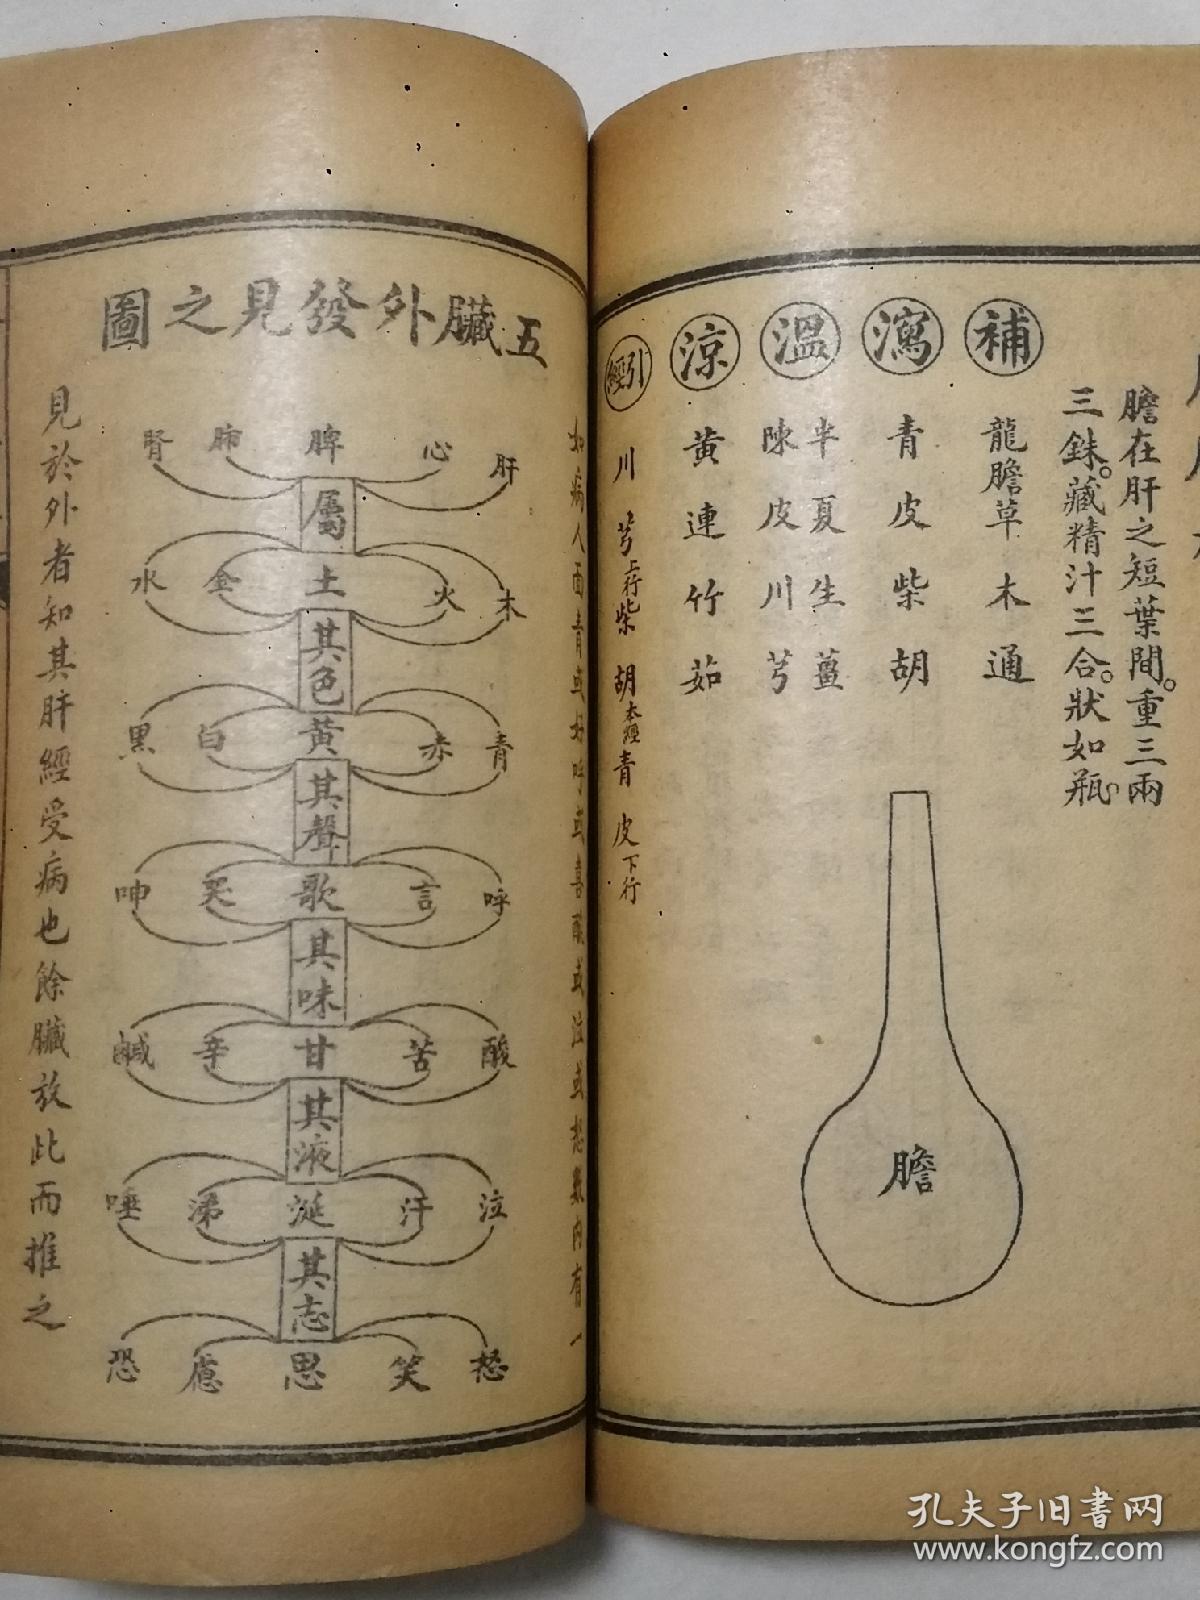 膽在肝之短葉間。重三兩
三銖。藏精汁三合。狀如瓶
補 龍膽草 木通
瀉 青皮 柴胡
溫 半夏 生薑
陳皮 川芎
涼 黃連 竹茹
引經 川芎上行 柴胡本經 青皮下行
膽
五臟外發見之圖
如病人面青或好呼或喜酸或泣或怒數內有一
肝 心 脾 肺 腎
屬
木 火 土 金 水
其色
青 赤 黃 白 黑
其聲
呼 言 歌 哭 呻
其味
酸 苦 甘 辛 鹹
其液
泣 汗 涎 涕 唾
其志
怒 笑 思 慮 恐
見於外者知其肝經受病也餘臟放此而推之
孔夫子旧书网
www.kongfz.com